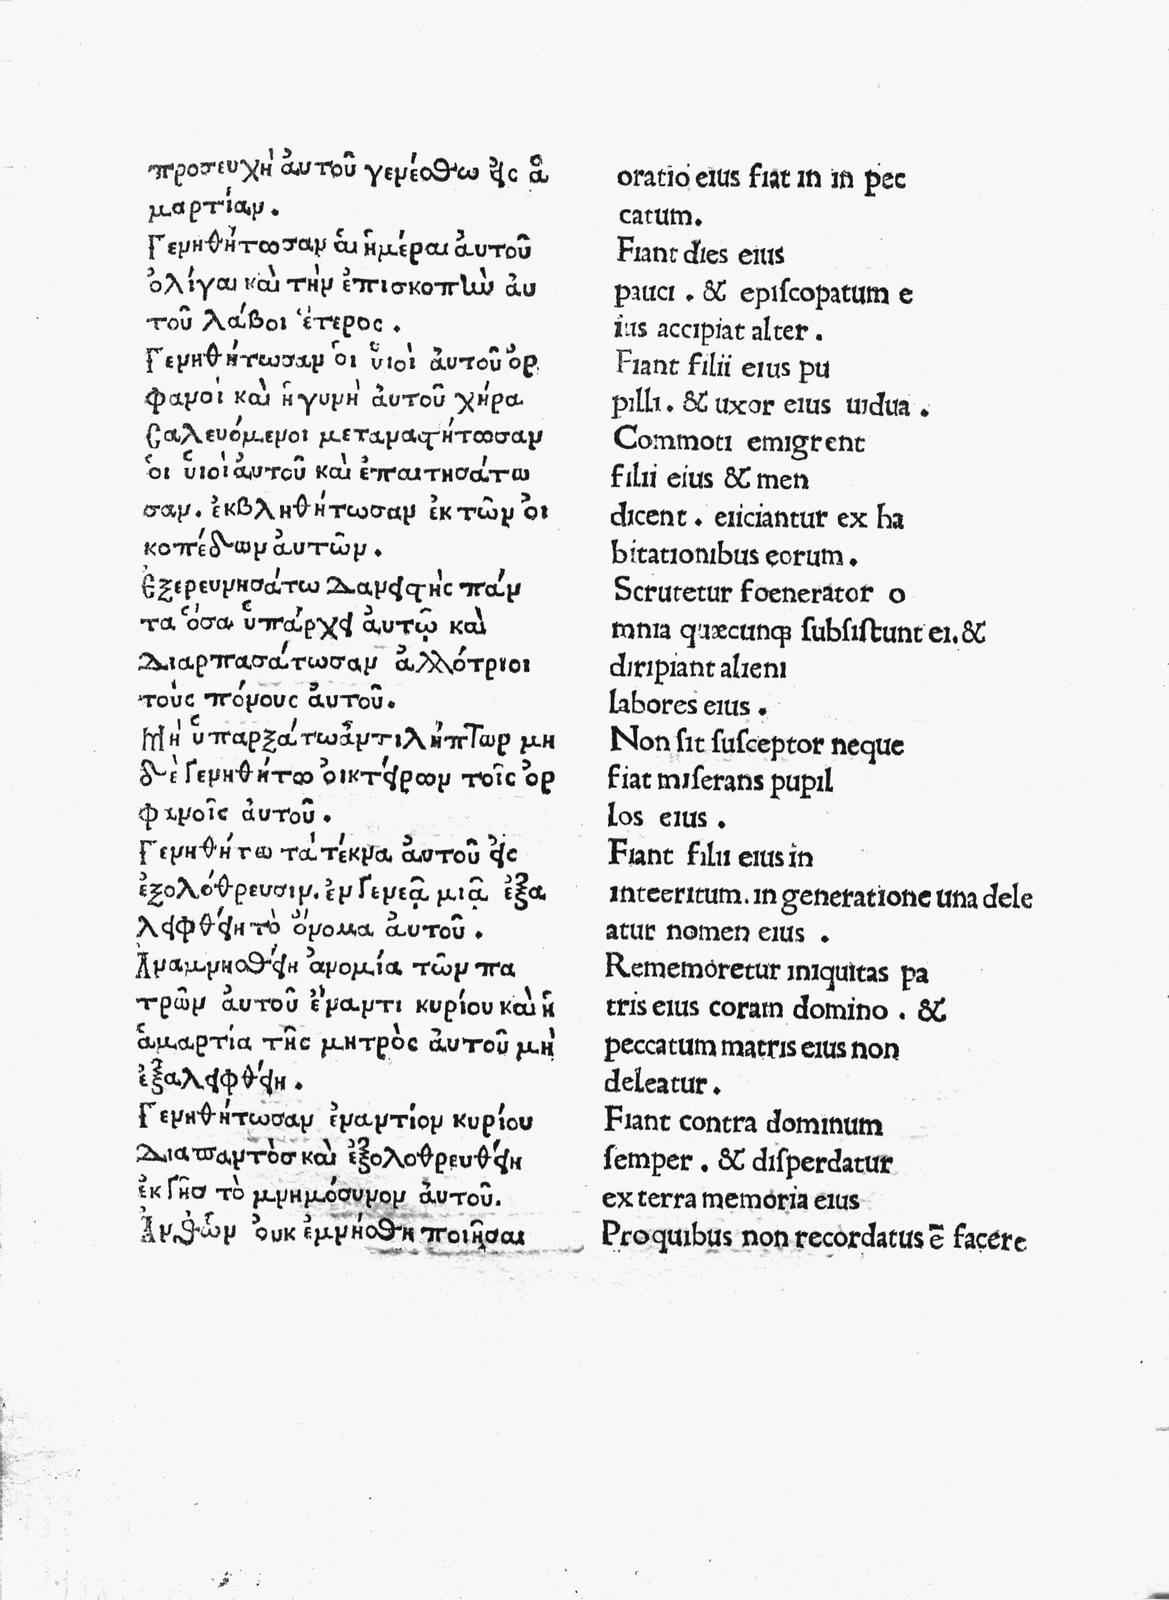 προσευχὴ ἀυτοῦ γενέσθω ἐις ἁ
μαρτίαν.
Γενηθήτωσαν ἁι ἡμέραι ἀυτοῦ
ὀλίγαι καὶ τὴν ἐπισκοπὴν ἀυ
τοῦ λάβοι ἕτερος.
Γενηθήτωσαν ὁι ὑιοὶ ἀυτοῦ ὀρ
φανοὶ καὶ ἡ γυνὴ ἀυτοῦ χήρα
Σαλευόμενοι μεταναστήτωσαν
ὁι ὑιοὶ ἀυτοῦ καὶ ἐπαιτησάτω
σαν. ἐκβληθήτωσαν ἐκ τῶν ὀι
κοπέδων ἀυτῶν.
Ἐξερευνησάτω Δανειστὴς πάν
τα ὅσα ὑπάρχει ἀυτῷ καὶ
Διαρπασάτωσαν ἀλλότριοι
τοὺς πόνους ἀυτοῦ.
Μὴ ὑπαρξάτω ἀντιλήπτωρ μη
δὲ γενηθήτω ὀικτείρων τοῖς ὀρ
φανοῖς ἀυτοῦ.
Γενηθήτω τὰ τέκνα ἀυτοῦ ἐις
ἐξολόθρευσιν. ἐν γενεᾷ μιᾷ ἐξα
λειφθείη τὸ ὄνομα ἀυτοῦ.
Ἀναμνησθείη ἀνομία τῶν πα
τρῶν ἀυτοῦ ἔναντι κυρίου καὶ ἡ
ἁμαρτία τῆς μητρὸς ἀυτοῦ μὴ
ἐξαλειφθείη.
Γενηθήτωσαν ἐναντίον κυρίου
Διαπαντὸσ καὶ ἐξολοθρευθείη
ἐκ γῆσ τὸ μνημόσυνον ἀυτοῦ.
Ἀνθ ὧν ὀυκ ἐμνήσθη ποιῆσαι
oratio eius fiat in in pec
catum.
Fiant dies eius
pauci . & epiſcopatum e
ius accipiat alter .
Fiant filii eius pu
pilli . & uxor eius uidua .
Commoti emigrent
filii eius & men
dicent . eiiciantur ex ha
bitationibus eorum .
Scrutetur foenerator o
mnia quæcunq; ſubſiſtunt ei. &
diripiant alieni
labores eius .
Non ſit ſuſceptor neque
fiat miſerans pupil
los eius .
Fiant filii eius in
inteeritum. in generatione una dele
atur nomen eius .
Rememoretur iniquitas pa
tris eius coram domino . &
peccatum matris eius non
deleatur .
Fiant contra dominum
ſemper . & diſperdatur
ex terra memoria eius
Pro quibus non recordatus ē facere